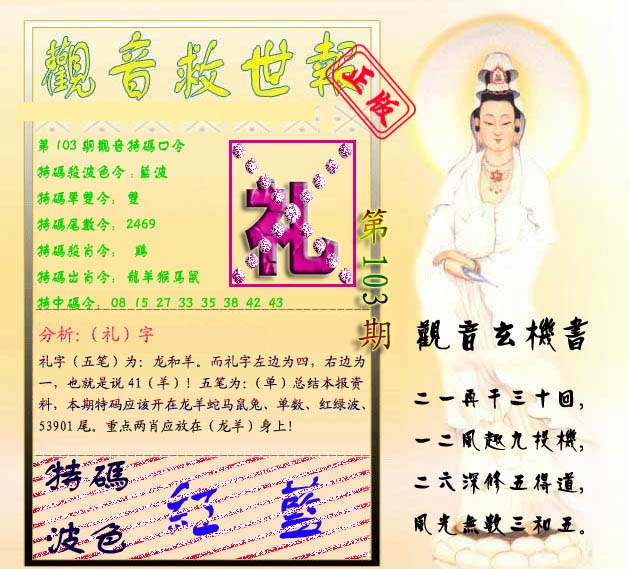 觀音救世報
正版
第103期觀音特碼口令
特碼殺波色令:藍波
特碼單雙令: 雙
特碼尾數令: 2469
特碼殺肖令: 鷄
特碼出肖令: 龍羊猴馬鼠
特中碼令: 08 15 27 33 35 38 42 43
礼
第103期
分析:（礼）字
礼字（五笔）为：龙和羊。而礼字左边为四，右边为
一，也就是说41（羊）！五笔为：（单）总结本报资
料，本期特码应该开在龙羊蛇马鼠兔、单数、红绿波、
53901尾。重点两肖应放在（龙羊）身上！
特碼
波色
紅 藍
觀音玄機書
二一再干三十回，
一二風趣九投機，
二六深修五得道，
風光無數三和五。